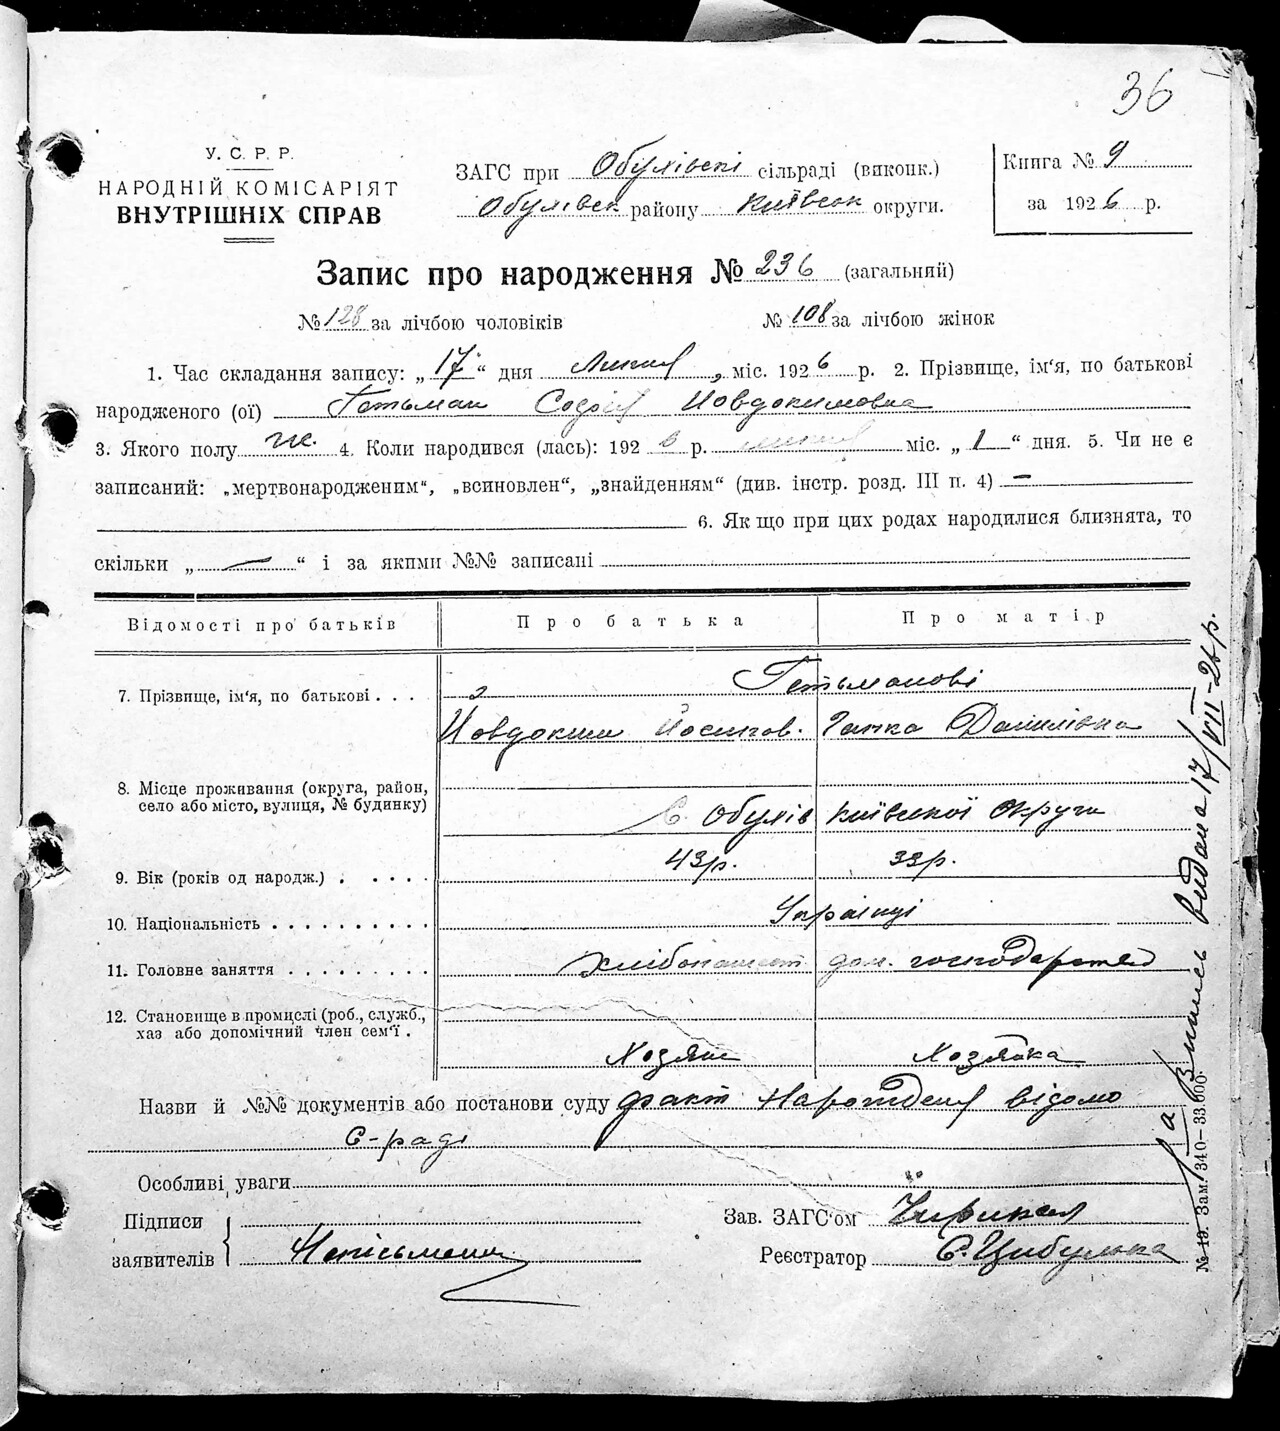 36
У. С. Р. Р.
НАРОДНІЙ КОМІСАРІЯТ
ВНУТРІШНІХ СПРАВ
ЗАГС при Обухівскі сільраді (виконк.)
Обухівськ району Київськ округи.
Книга № 9
за 1926 р.
Запис про народження № 236 (загальний)
№ 128 за лічбою чоловіків № 108 за лічбою жінок
1. Час складання запису: „17“ дня Липня, міс. 1926 р. 2. Прізвище, ім‘я, по батькові
народженого (ої) Гетьман Софія Йовдокимовна
3. Якого полу ж. 4. Коли народився (лась): 1926 р. липня міс. „1“ дня. 5. Чи не є
записаний: „мертвонародженим“, „всиновлен“, „знайденням“ (див. інстр. розд. III п. 4) —
6. Як що при цих родах народилися близнята, то
скільки „—“ і за якими №№ записані
Відомості про батьків Про батька Про матір
7. Прізвище, ім‘я, по батькові . . . Гетьманові
Йовдоким Йосипов. Ганка Данилівна
8. Місце проживання (округа, район,
село або місто, вулиця, № будинку)
с. Обухів Київської Округи
9. Вік (років од народж.) . . . . . 43р. 33р.
10. Національність . . . . . . . . . . Українці
11. Головне заняття . . . . . . . . . Хлібопашест дом. господарствд
12. Становище в промислі (роб., служб.,
хаз або допомічний член сем‘ї .
Хозяин Хозяйка
Назви й №№ документів або постанови суду факт Нарождения відомо
С-раді
Особливі уваги
Підписи
заявителів Непісьмени
Зав. ЗАГС‘ом
Реєстратор Є. Цибулька
Впись видана 17/VII-26 р.
№ 19. Зам. 340—33.000.